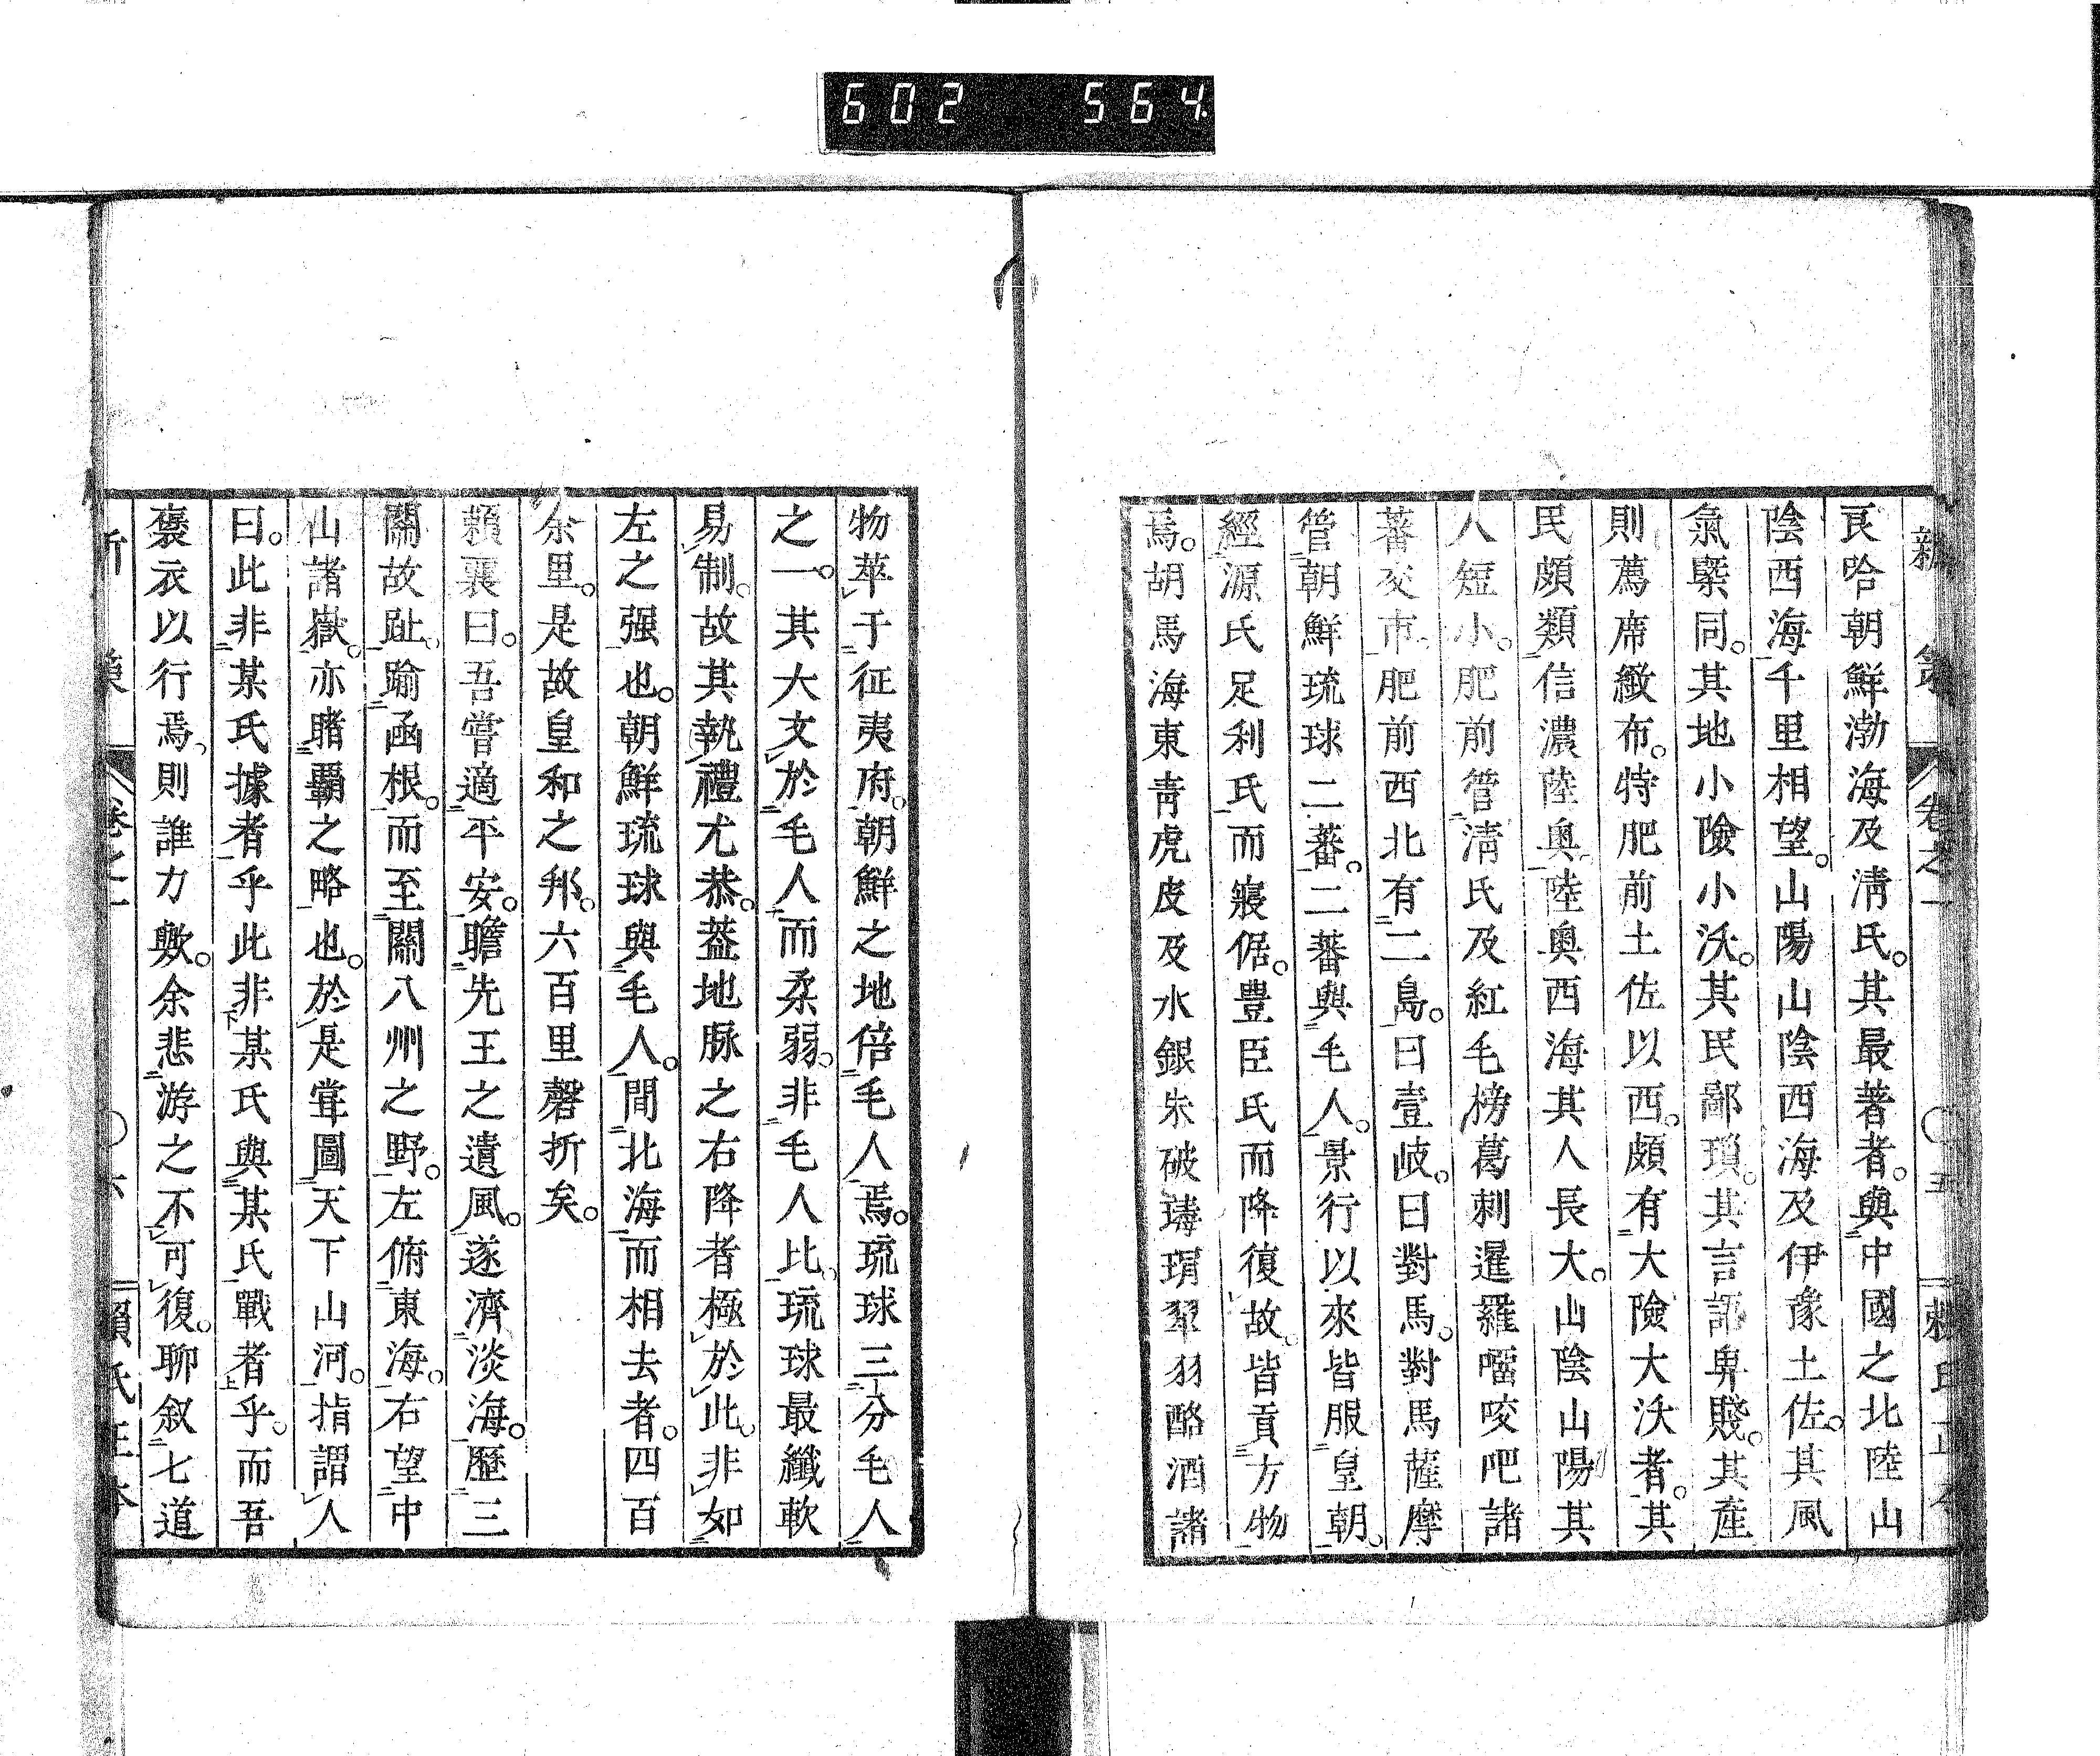 602 564
新策 卷之一 〇五 賴氏正本
亰哈朝鮮渤海及淸氏。其最著者。與中國之北陸山
陰西海千里相望。山陽山陰西海及伊豫土佐。其風
氣槩同。其地小險小沃。其民鄙瑣。其言詭卑賤。其產
則薦席緻布。特肥前土佐以西。頗有大險大沃者。其
民頗類信濃陸奥。陸奥西海其人長大。山陰山陽其
人短小。肥前管淸氏及紅毛榜葛剌暹羅㗂咬吧諸
蕃交市。肥前西北有二島。曰壹岐。曰對馬。對馬薩摩
管朝鮮琉球二蕃。二蕃與毛人。景行以來皆服皇朝。
經源氏足利氏而寢倨。豐臣氏而降復故。皆貢方物
焉。胡馬海東靑虎皮及水銀朱破瑇瑁翠羽酪酒諸
物萃于征夷府。朝鮮之地倍毛人焉。琉球三分毛人
之一。其大文於毛人而柔弱。非毛人比。琉球最纖軟
易制。故其執禮尤恭。蓋地脈之右降者極於此。非如
左之强也。朝鮮琉球與毛人。間北海而相去者。四百
余里。是故皇和之邦。六百里磬折矣。
賴襄曰。吾嘗適平安。瞻先王之遺風。遂濟淡海。歷三
關故趾。踰函根。而至關八州之野。左俯東海。右望中
山諸嶽。亦睹覇之略也。於是聳圖天下山河。指謂人
曰。此非某氏據者乎此非某氏與某氏戰者乎。而吾
褒衣以行焉。則誰力歟。余悲游之不可復。聊叙七道
新策 卷之一 〇六 賴氏正本